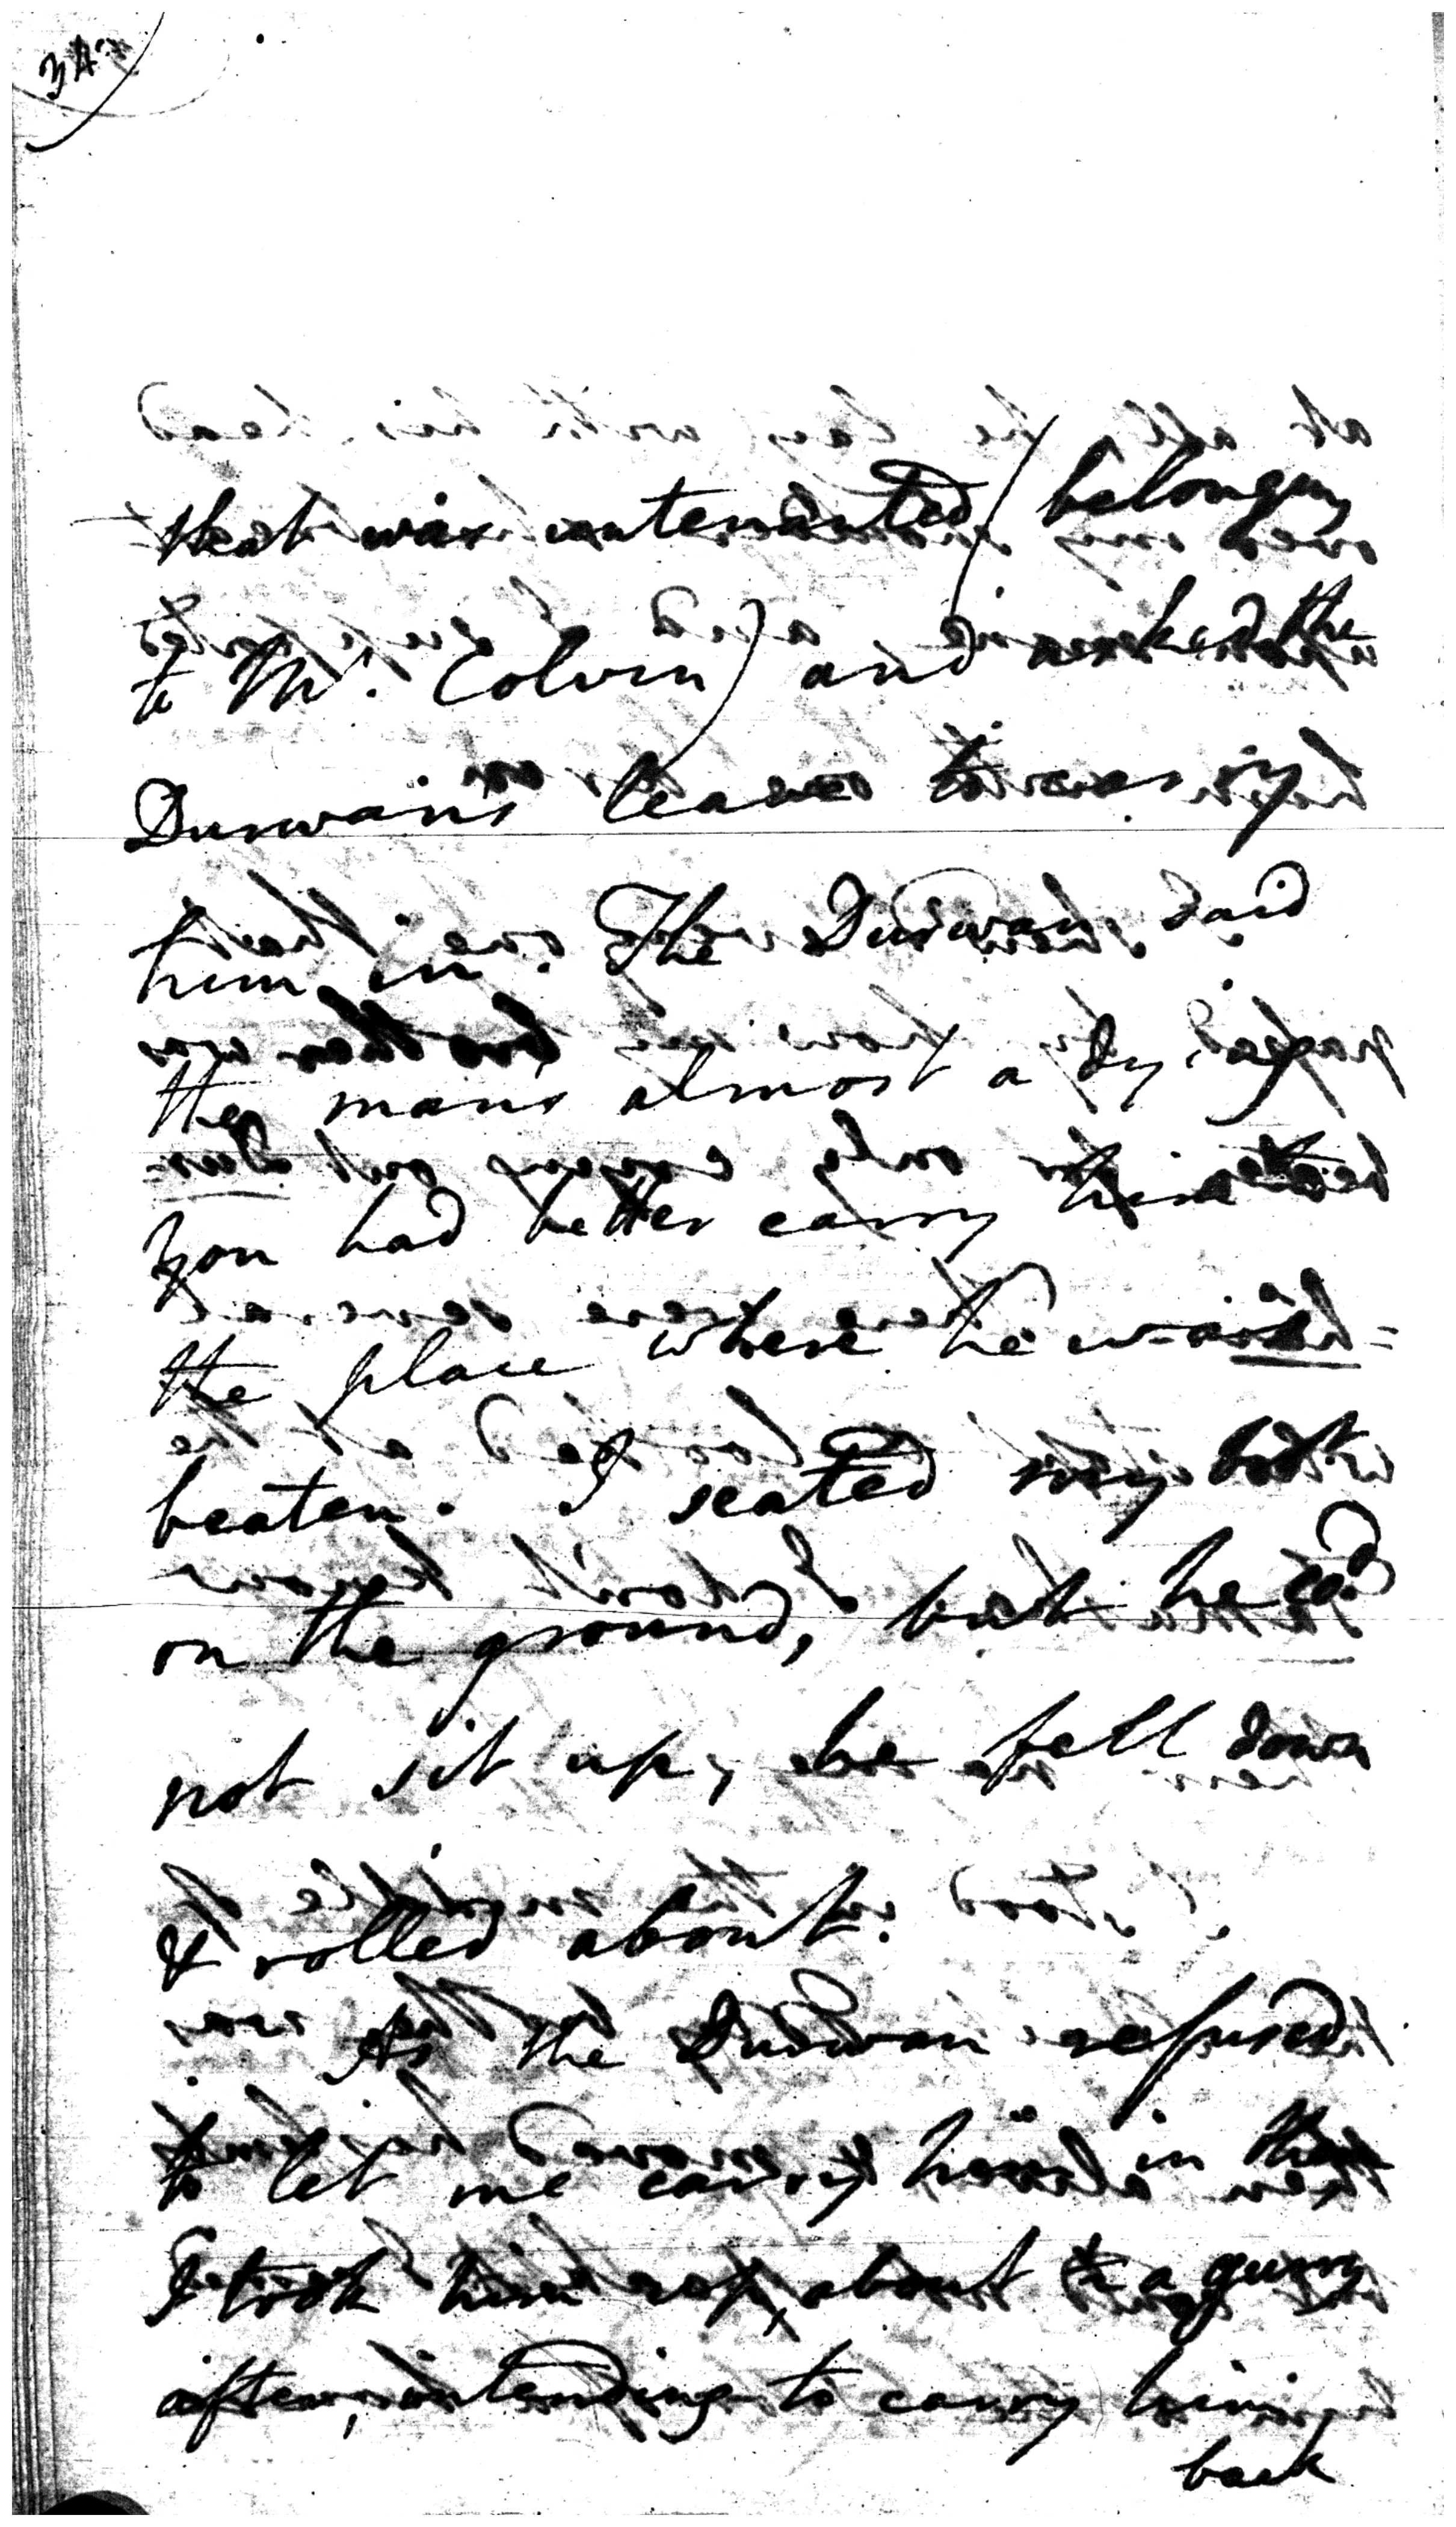 that was untenanted (belonging
to Mr. Colvin) and asked the
Durwan's leave to carry
him in. The Durwan said
the man's almost a dying
you had better carry him to
the place where he was
beaten. I seated my
on the ground, but he cod
not sit up, he fell down
& rolled about.
As the Durwan refused
to let me carry him in then
I took him up about a gurry
after, intending to carry him
back